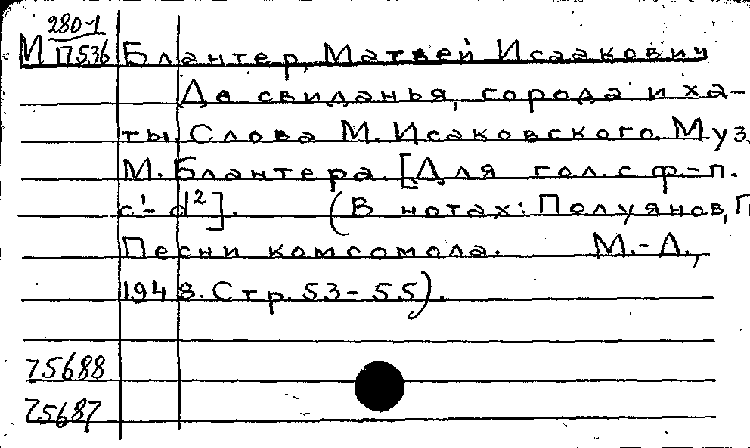 280-1
М П536 Блантер, Матвей Исаакович
До свиданья, города и ха-
ты. Слова М. Исаковского. Муз.
М. Блантера. [Для гол. с ф-п.
c¹- d²]. (В нотах: Полуянов, П
Песни комсомола. М.-Л.,
1948. Стр. 53-55).
75688
75687